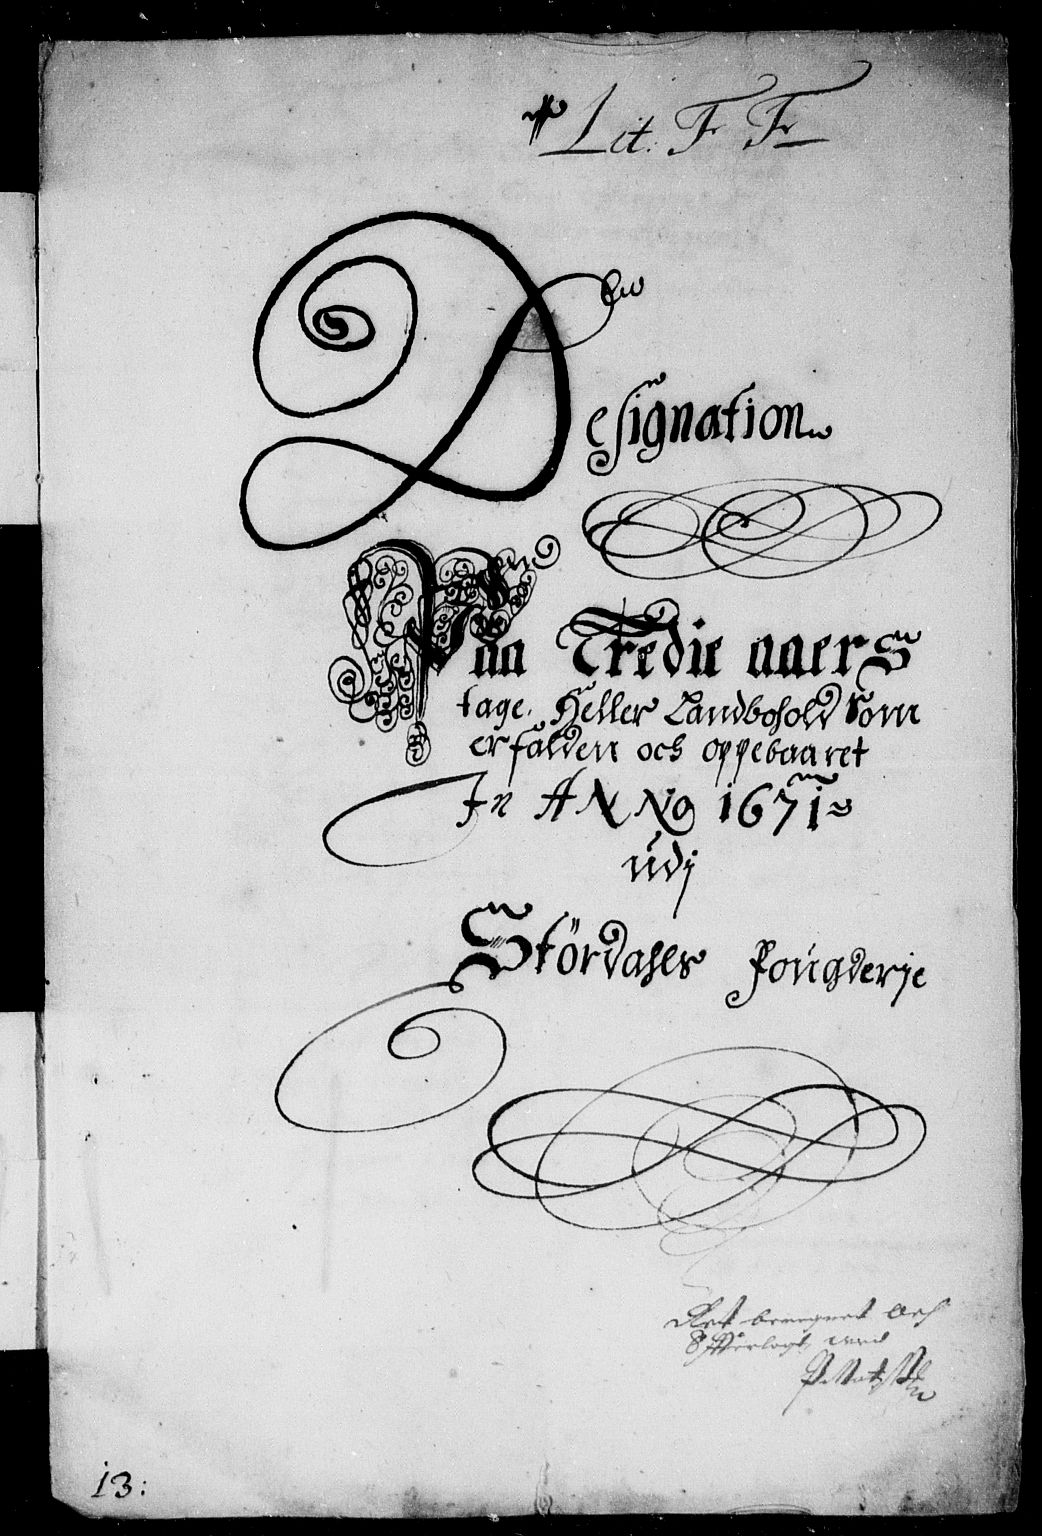 Lit: F F
Designation
Paa Tredie aaers
tage. Heller Landbohold Som
erfalden och oppebaaret
In ANNO 1671
udj
Stördahls Fougderje
Ret beregnet och
13: